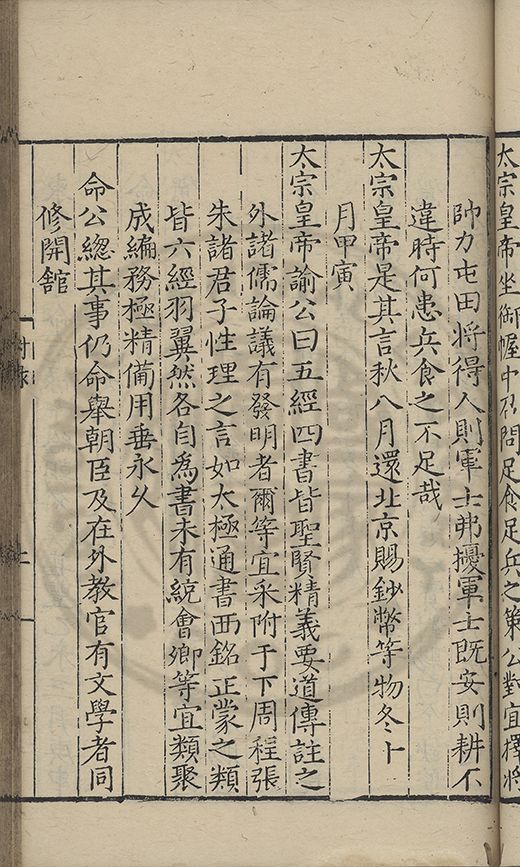 太宗皇帝坐御幄中召問足食足兵之策公對宜擇將
帥力屯田將得人則軍士弗擾軍士既安則耕不
違時何患兵食之不足哉
太宗皇帝是其言秋八月還北京賜鈔幣等物冬十
月甲寅
太宗皇帝諭公曰五經四書皆聖賢精義要道傳註之
外諸儒論議有發明者爾等宜采附于下周程張
朱諸君子性理之言如太極通書西銘正蒙之類
皆六經羽翼然各自爲書未有統會卿等宜類聚
成編務極精備用垂永久
命公總其事仍命舉朝臣及在外教官有文學者同
修開舘
附錄